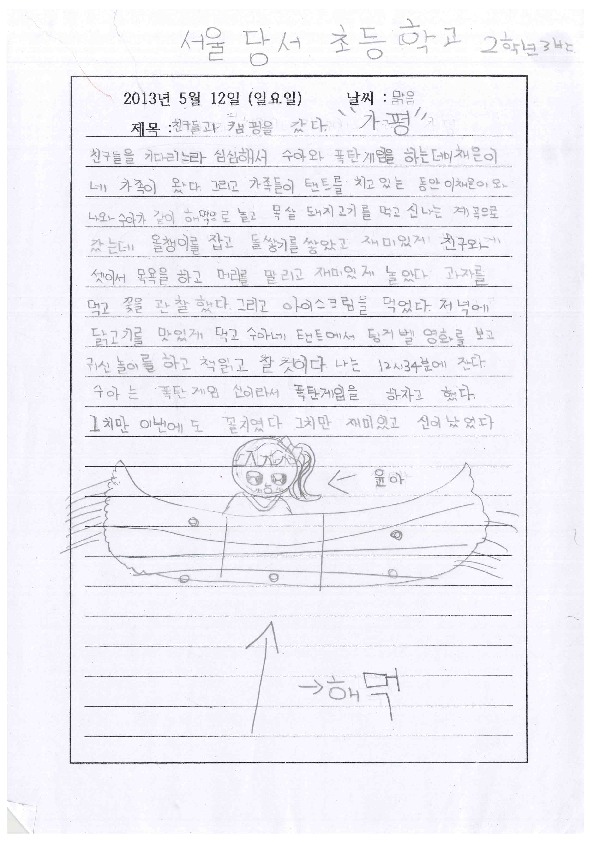 서울 당서 초등학교 2학년 3반
2013년 5월 12일 (일요일) 날씨 : 맑음
제목 : 친구들과 캠핑을 갔다. "가평"
친구들을 기다리느라 심심해서 수아와 폭탄게임을 하는데 이채은이
네 가족이 왔다. 그리고 가족들이 텐트를 치고 있는 동안 이채은이와
나와 수아가 같이 해먹으로 놀고 목살 돼지고기를 먹고 신나는 계곡으로
갔는데 올챙이를 잡고 돌쌓기를 쌓았고 재미있게 친구와
셋이서 목욕을 하고 머리를 말리고 재미있게 놀았다 과자를
먹고 꽃을 관찰했다. 그리고 아이스크림을 먹었다. 저녁에
닭고기를 맛있게 먹고 수아네 텐트에서 팅커벨 영화를 보고
귀신놀이를 하고 책읽고 잘 것이다 나는 12시34분에 잔다
수아는 폭탄게임 신이라서 폭탄게임을 하자고 했다.
그치만 이번에도 꼴지였다 그치만 재미있고 신이났었다
← 윤아
→ 해먹